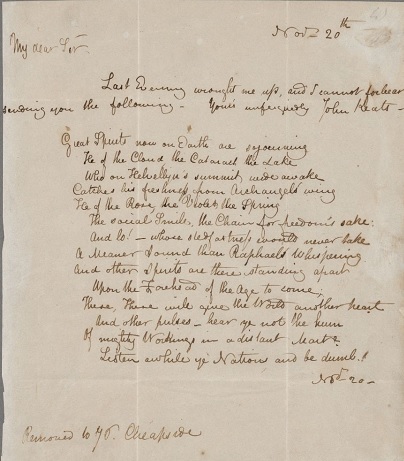 Nov.r 20th
My dear Sir
Last Evening wrought me up, and I cannot forbear
sending you the following — Yours unfeignedly John Keats —
Great Spirits now on Earth are sojourning
He of the Cloud, the Cataract the Lake
Who on Helvellyn's summit wide awake
Catches his freshness from Archangel's wing
He of the Rose, the Violet, the Spring
The social Smile, the Chain for freedom's sake:
And lo! — whose stedfastness would never take
A Meaner Sound than Raphael's Whispering
And other Spirits are there standing apart
Upon the Forehead of the Age to come;
These, These will give the World another heart
And other pulses — hear ye not the hum
Of mighty Workings in a distant Mart?
Listen awhile ye Nations and be dumb.!
Nov.r 20 —
Removed to 76. Cheapside